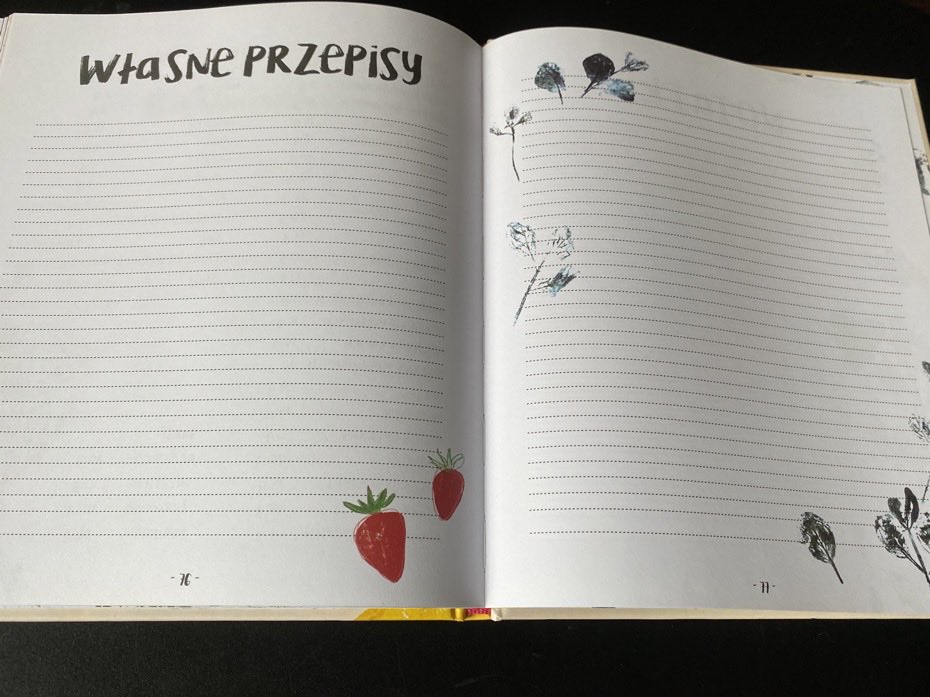 WŁASNE PRZEPISY
- 76 -
- 77 -